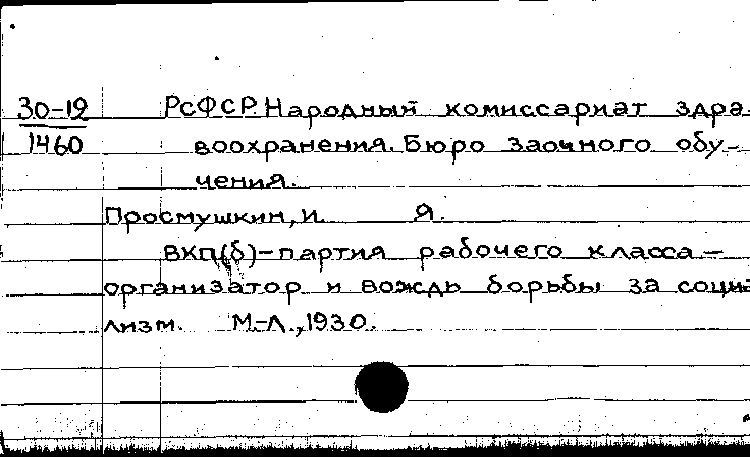 30-19
1460
РСФСР. Народный комиссариат здра-
воохранения. Бюро заочного обу-
чения.
Просмушкин, И. Я.
ВКП(б)-партия рабочего класса-
организатор и вождь борьбы за социа
лизм. М.-Л., 1930.